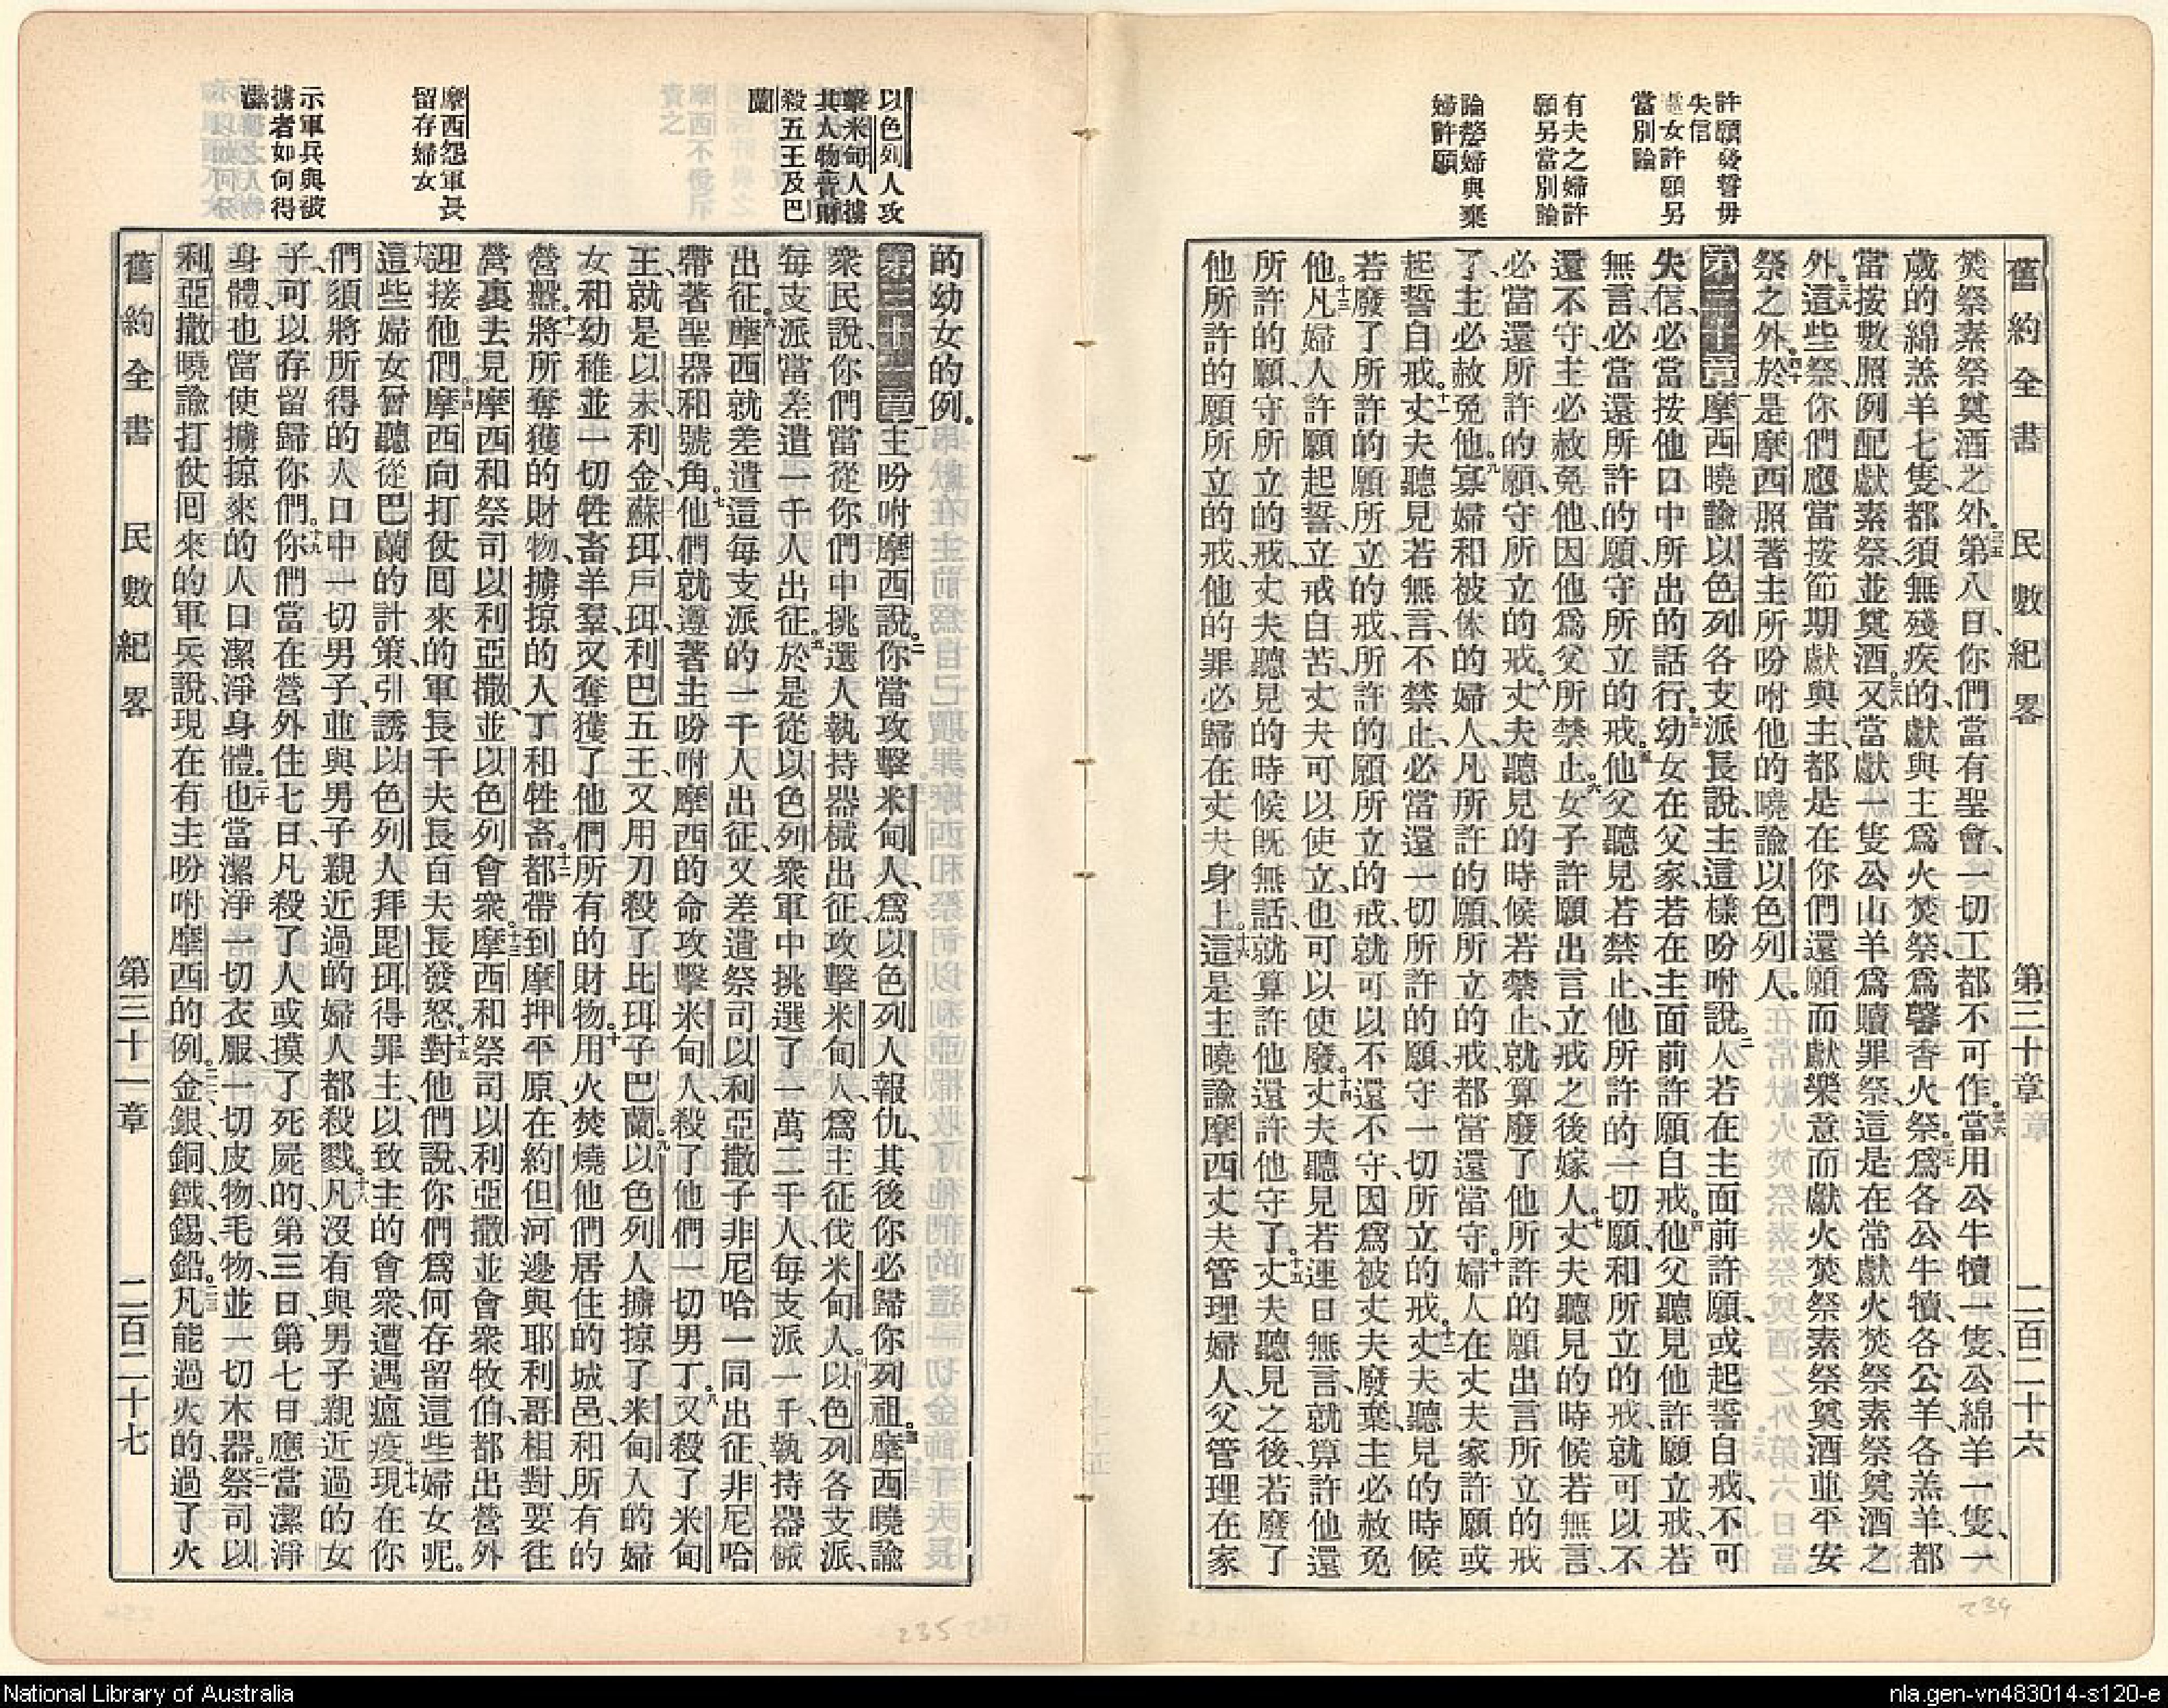 舊約全書 民數紀畧 第三十章 二百二十六
許願發誓毋
失信
處女許願另
當別論
有夫之婦許
願另當別論
論嫠婦與棄
婦許願
焚祭素祭奠酒之外。三五第八日、你們當有聖會、一切工都不可作。三六當用公牛犢一隻、公綿羊一隻、一
歲的綿羔羊七隻、都須無殘疾的、獻與主爲火焚祭、爲馨香火祭。三七爲各公牛犢、各公羊、各羔羊、都
當按數照例配獻素祭、並奠酒。三八又當獻一隻公山羊爲贖罪祭、這是在常獻火焚祭素祭奠酒之
外。三九這些祭、你們應當按節期獻與主、都是在你們還願而獻、樂意而獻火焚祭素祭奠酒並平安
祭之外。四十於是摩西照著主所吩咐他的、曉諭以色列人。
第三十章一摩西曉諭以色列各支派長說、主這樣吩咐說。二人若在主面前許願、或起誓自戒、不可
失信、必當按他口中所出的話行。三幼女在父家、若在主面前許願自戒。四他父聽見他許願立戒、若
無言、必當還所許的願、守所立的戒。五他父聽見若禁止、他所許的一切願、和所立的戒、就可以不
還不守、主必赦免他、因他爲父所禁止。六女子許願出言立戒之後嫁人。七丈夫聽見的時候若無言、
必當還所許的願、守所立的戒。八丈夫聽見的時候若禁止、就算廢了他所許的願出言所立的戒
了、主必赦免他。九寡婦和被休的婦人、凡所許的願、所立的戒、都當還當守。十婦人在丈夫家許願或
起誓自戒。十一丈夫聽見若無言、不禁止、必當還一切所許的願、守一切所立的戒。十二丈夫聽見的時候
若廢了所許的願所立的戒、所許的願所立的戒、就可以不還不守、因爲被丈夫廢棄、主必赦免
他。十三凡婦人許願起誓、立戒自苦、丈夫可以使立、也可以使廢。十四丈夫聽見若連日無言、就算許他還
所許的願、守所立的戒、丈夫聽見的時候旣無話、就算許他還許他守了。十五丈夫聽見之後、若廢了
他所許的願所立的戒、他的罪必歸在丈夫身上。十六這是主曉諭摩西、丈夫管理婦人、父管理在家
以色列人攻
擊米甸人擄
其人物貲財
殺五王及巴
蘭
摩西怨軍長
留存婦女
示軍兵與被
擄者如何得
潔
的幼女的例。
第三十一章一主吩咐摩西說。二你當攻擊米甸人、爲以色列人報仇、其後你必歸你列祖。三摩西曉諭
衆民說、你們當從你們中挑選人執持器械出征、攻擊米甸人、爲主征伐米甸人。四以色列各支派、
每支派當差遣一千人出征。五於是從以色列衆軍中挑選了一萬二千人、每支派一千、執持器械
出征。六摩西就差遣這每支派的一千人出征、又差遣祭司以利亞撒子非尼哈一同出征、非尼哈
帶著聖器和號角。七他們就遵著主吩咐摩西的命、攻擊米甸人、殺了他們一切男丁。八又殺了米甸
王、就是以未、利金、蘇珥、戶珥、利巴五王、又用刀殺了比珥子巴蘭。九以色列人擄掠了米甸人的婦
女和幼稚、並一切牲畜、羊羣、又奪獲了他們所有的財物。十用火焚燒他們居住的城邑、和所有的
營盤。十一將所奪獲的財物、擄掠的人丁和牲畜。十二都帶到摩押平原、在約但河邊、與耶利哥相對、要往
營裏去見摩西和祭司以利亞撒、並以色列會衆。十三摩西和祭司以利亞撒並會衆牧伯、都出營外
迎接他們。十四摩西向打仗回來的軍長千夫長百夫長發怒。十五對他們說、你們爲何存留這些婦女呢。
十六這些婦女曾聽從巴蘭的計策、引誘以色列人拜毘珥得罪主、以致主的會衆、遭遇瘟疫。十七現在你
們須將所得的人口中一切男子、並與男子親近過的婦人都殺戮。十八凡沒有與男子親近過的女
子、可以存留歸你們。十九你們當在營外住七日、凡殺了人或摸了死屍的、第三日、第七日、應當潔淨
身體、也當使擄掠來的人口潔淨身體。二十也當潔淨一切衣服、一切皮物、毛物、並一切木器。二一祭司以
利亞撒曉諭打仗回來的軍兵說、現在有主吩咐摩西的例。二二金、銀、銅、鐵、錫、鉛。二三凡能過火的、過了火
舊約全書 民數紀畧 第三十一章 二百二十七
234
235
National Library of Australia
nla.gen-vn483014-s120-e